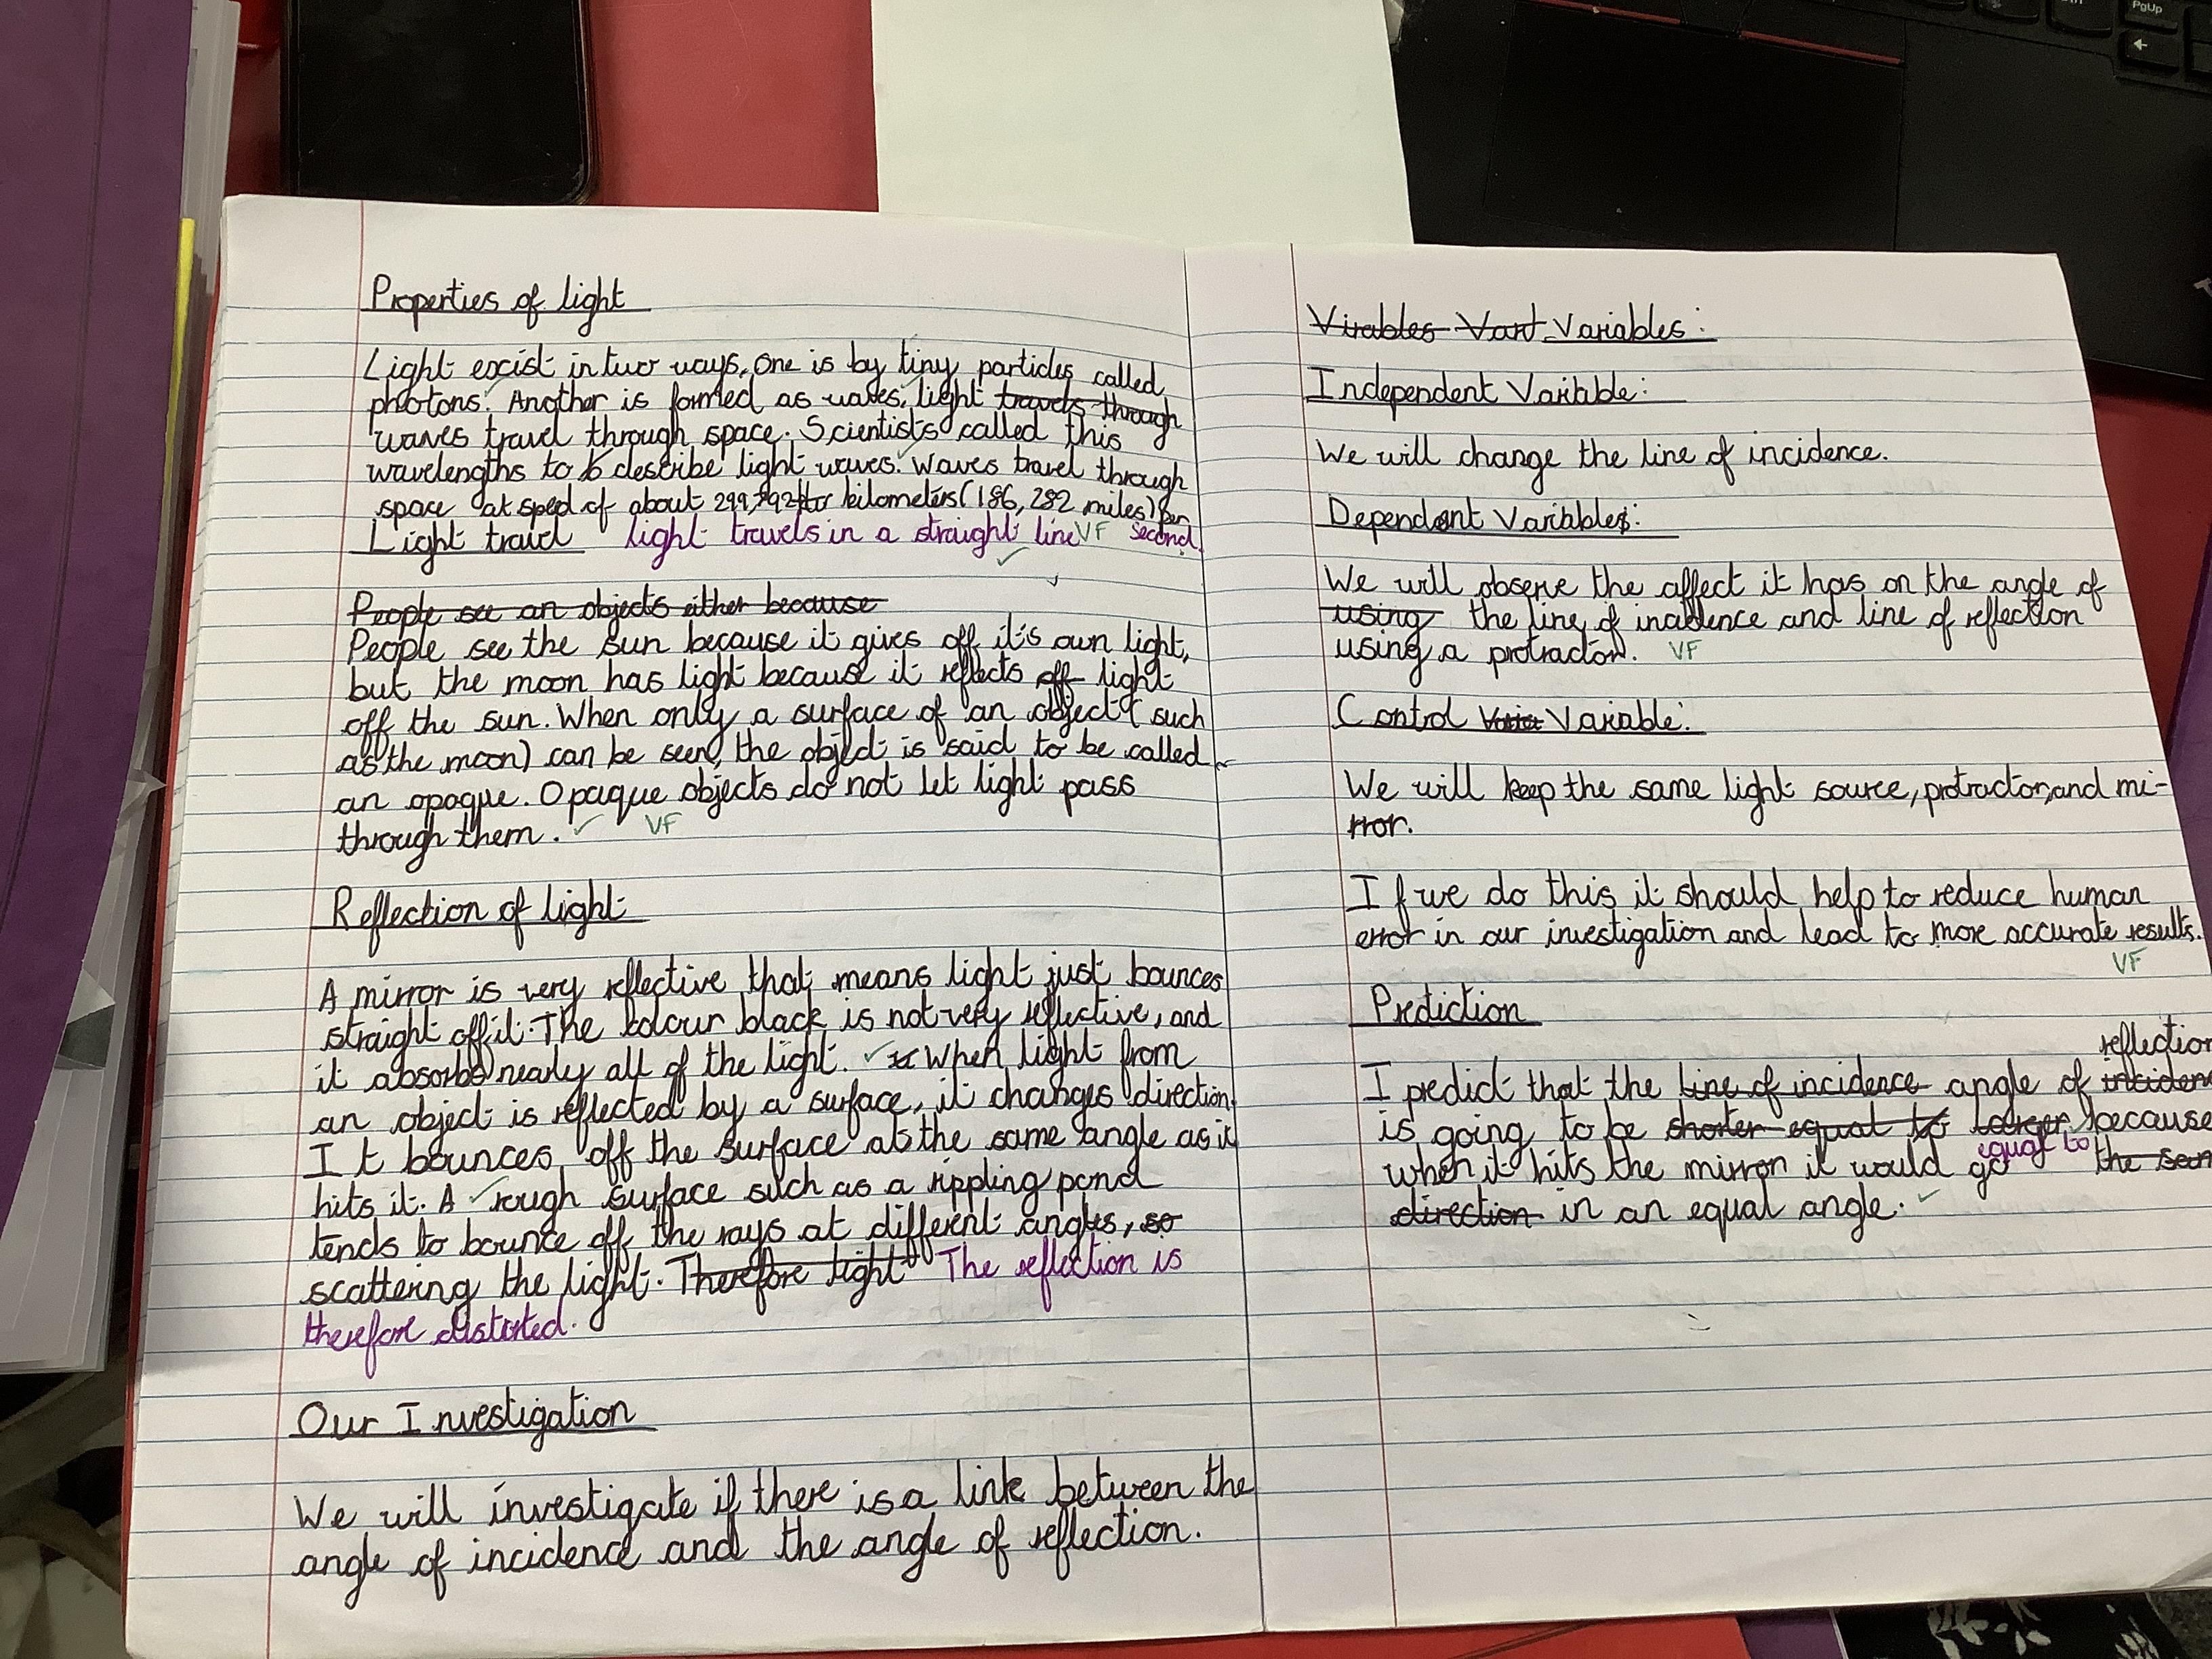 Properties of light
Light excist in two ways, one is by tiny particles called
photons. Another is formed as waves, light travels through
waves travel through space. Scientists called this
wavelengths to b describe light waves. Waves travel through
space at sped of about 299,792 kilometers (186,282 miles) per
Light travel light travels in a straight line VF second.
People see an objects either because
People see the sun because it gives off it's own light,
but the moon has light because it reflects off light
off the sun. When only a surface of an object (such
as the moon) can be seen, the object is said to be called
an opaque. Opaque objects do not let light pass
through them. VF
Reflection of light
A mirror is very reflective that means light just bounces
straight off it. The colour black is not very reflective, and
it absorbs nearly all of the light. When light from
an object is reflected by a surface, it changes direction.
It bounces off the surface at the same angle as it
hits it. A rough surface such as a rippling pond
tends to bounce off the rays at different angles, so
scattering the light. Therefore light The reflection is
therefore distorted.
Our Investigation
We will investigate if there is a link between the
angle of incidence and the angle of reflection.
Virables Vart Variables:
Independent Variable:
We will change the line of incidence.
Dependent Variables:
We will observe the affect it has on the angle of
using the line of incidence and line of reflection
using a protractor. VF
Control Varia Variable:
We will keep the same light source, protractor, and mi-
rror.
If we do this it should help to reduce human
error in our investigation and lead to more accurate results.
VF
Prediction
reflection
I predict that the line of incidence angle of inciden
is going to be shorter equal to larger, because
equal to
when it hits the mirror it would go the sam
direction in an equal angle.
PgUp